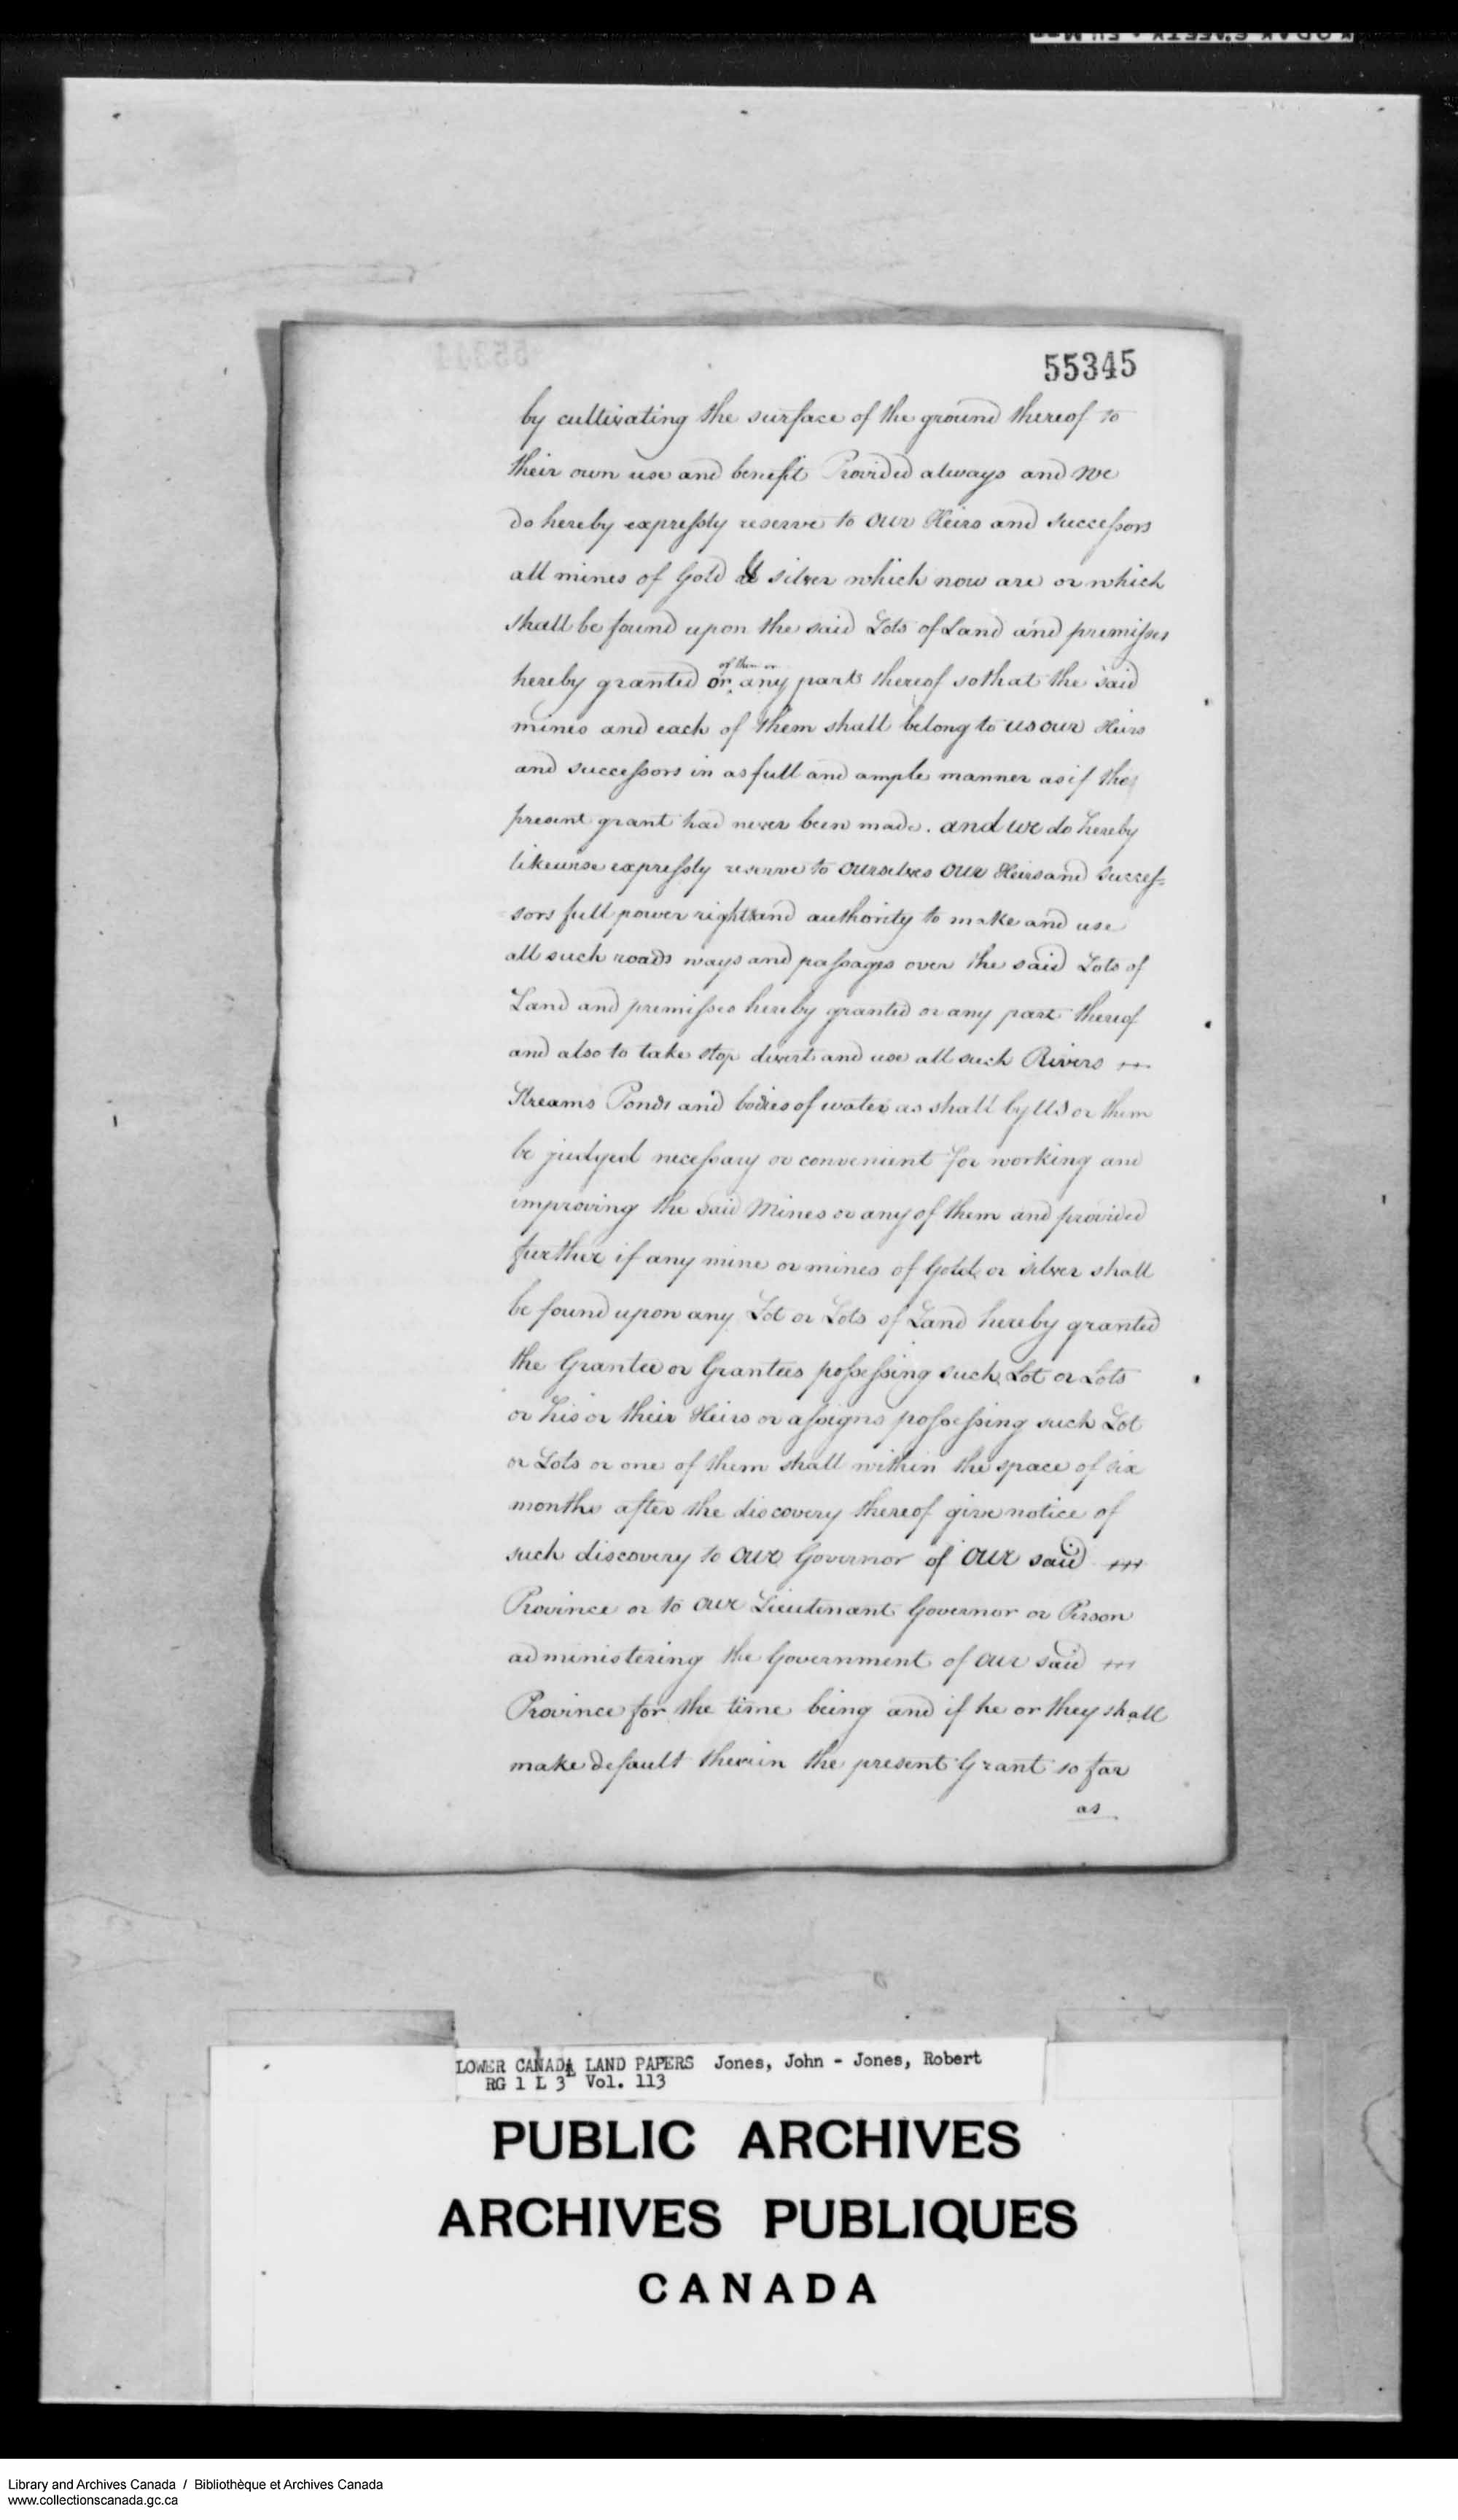 55345
by cultivating the surface of the ground thereof to
their own use and benefit Provided always and We
do hereby expressly reserve to our Heirs and successors
all mines of Gold & silver which now are or which
shall be found upon the said Lots of Land and premisses
of them or
hereby granted or any parts thereof so that the said
mines and each of them shall belong to us our Heirs
and successors in as full and ample manner as if the
present grant had never been made. and we do hereby
likewise expressly reserve to ourselves our Heirs and succes=
sors full power right and authority to make and use
all such roads ways and passages over the said Lots of
Land and premisses hereby granted or any part thereof
and also to take stop divert and use all such Rivers
Streams Ponds and bodies of water as shall by US or them
be judged necessary or convenient for working and
improving the said Mines or any of them and provided
further if any mine or mines of Gold or silver shall
be found upon any Lot or Lots of Land hereby granted
the Grantee or Grantees possessing such Lot or Lots
or his or their Heirs or assigns possessing such Lot
or Lots or one of them shall within the space of six
months after the discovery thereof give notice of
such discovery to our Governor of our said
Province or to our Lieutenant Governor or Person
administering the Government of our said
Province for the time being and if he or they shall
make default therein the present Grant so far
as
LOWER CANADA LAND PAPERS Jones, John - Jones, Robert
RG 1 L 3 Vol. 113
PUBLIC ARCHIVES
ARCHIVES PUBLIQUES
CANADA
Library and Archives Canada / Bibliothèque et Archives Canada
www.collectionscanada.gc.ca